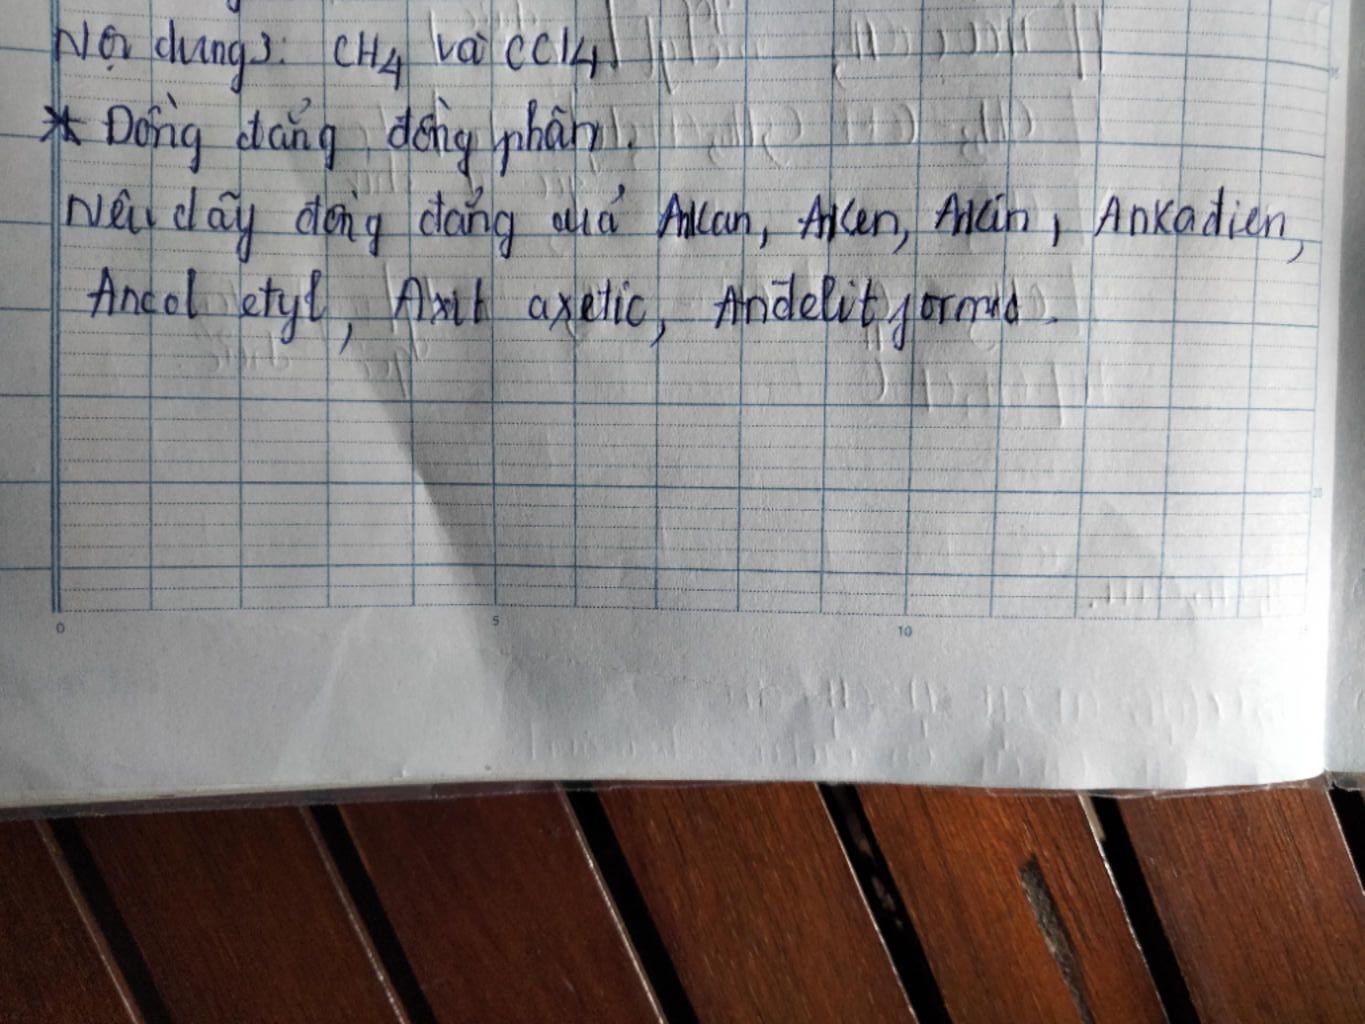 Nội dung3: CH4 và CCl4
* Đồng đẳng, đồng phân.
Nêu dãy đồng đẳng của Ankan, Anken, Ankin, Ankadien,
Ancol etyl, Axit axetic, Anđelit formic.
0 5 10